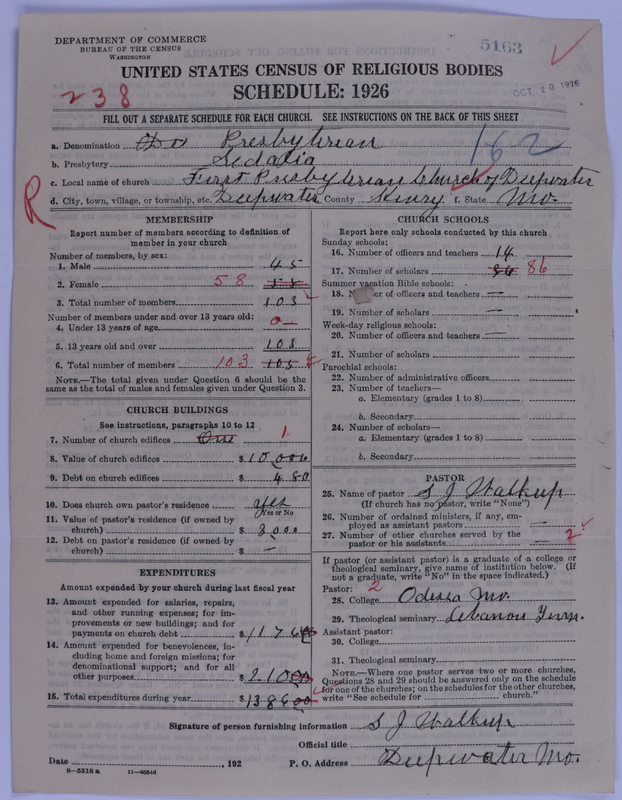 DEPARTMENT OF COMMERCE
BUREAU OF THE CENSUS
WASHINGTON
5163
UNITED STATES CENSUS OF RELIGIOUS BODIES
238
SCHEDULE: 1926
OCT 20 1926
FILL OUT A SEPARATE SCHEDULE FOR EACH CHURCH. SEE INSTRUCTIONS ON THE BACK OF THIS SHEET
a. Denomination Presbyterian
162
b. Presbytery Sedalia
c. Local name of church First Presbyterian Church of Deepwater
d. City, town, village, or township, etc. Deepwater County Henry f. State Mo.
R
MEMBERSHIP
Report number of members according to definition of
member in your church
Number of members, by sex:
1. Male 45
2. Female 58
3. Total number of members 103
Number of members under and over 13 years old:
4. Under 13 years of age 0
5. 13 years old and over 103
6. Total number of members 103 103
NOTE.—The total given under Question 6 should be the
same as the total of males and females given under Question 3.
CHURCH BUILDINGS
See instructions, paragraphs 10 to 12
7. Number of church edifices One 1.
8. Value of church edifices $10,000
9. Debt on church edifices $ 480
10. Does church own pastor's residence yes
Yes or No
11. Value of pastor's residence (if owned by
church) $ 3000
12. Debt on pastor's residence (if owned by
church) $ —
EXPENDITURES
Amount expended by your church during last fiscal year
13. Amount expended for salaries, repairs,
and other running expenses; for im-
provements or new buildings; and for
payments on church debt $1176
14. Amount expended for benevolences, in-
cluding home and foreign missions; for
denominational support; and for all
other purposes $210
15. Total expenditures during year $1386
CHURCH SCHOOLS
Report here only schools conducted by this church
Sunday schools:
16. Number of officers and teachers 14
17. Number of scholars 86
Summer vacation Bible schools:
18. N er of officers and teachers —
19. Number of scholars —
Week-day religious schools:
20. Number of officers and teachers —
21. Number of scholars
Parochial schools:
22. Number of administrative officers
23. Number of teachers—
a. Elementary (grades 1 to 8)
b. Secondary
24. Number of scholars—
a. Elementary (grades 1 to 8)
b. Secondary
PASTOR
25. Name of pastor S J Walkup
(If church has no pastor, write "None")
26. Number of ordained ministers, if any, em-
ployed as assistant pastors —
27. Number of other churches served by the
pastor or his assistants — 2
If pastor (or assistant pastor) is a graduate of a college or
theological seminary, give name of institution below. (If
not a graduate, write "No" in the space indicated.)
Pastor: 2
28. College Odessa Mo.
29. Theological seminary Lebanon Tenn.
Assistant pastor:
30. College
31. Theological seminary
NOTE.—Where one pastor serves two or more churches,
Questions 28 and 29 should be answered only on the schedule
for one of the churches; on the schedules for the other churches,
write "See schedule for church."
Signature of person furnishing information S J Walkup
Official title
Date , 192 P. O. Address Deepwater Mo.
8—5518 a 11—9051d